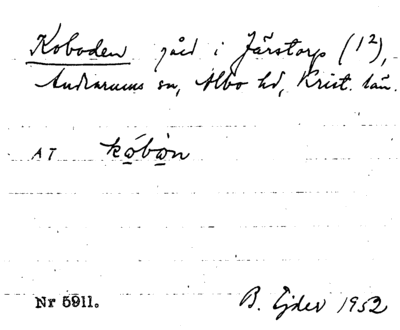 Koboden gård i Järstorp (1²),
Andrarums sn, Albo hd, Krist. län.
AT kǫ́bǫ̀n
Nr 5911.
B. Ejder 1952